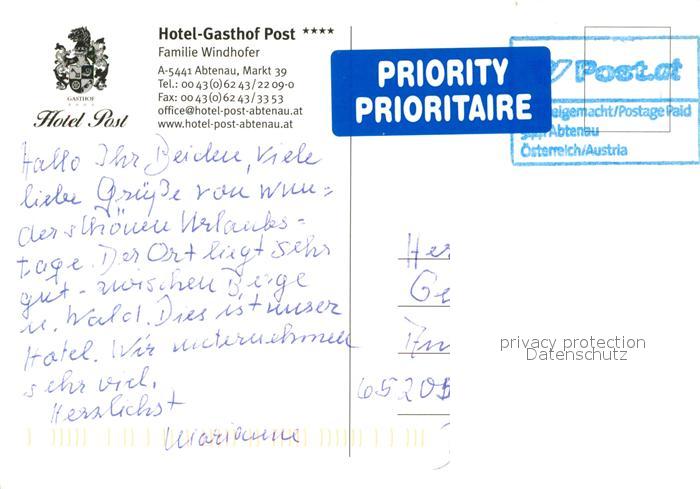 Hotel-Gasthof Post ****
Familie Windhofer
A-5441 Abtenau, Markt 39
Tel.: 00 43(0)62 43/22 09-0
Fax: 00 43(0)62 43/33 53
office@hotel-post-abtenau.at
www.hotel-post-abtenau.at
GASTHOF
Hotel Post
PRIORITY
PRIORITAIRE
Post.at
eigemacht/Postage Paid
5441 Abtenau
Österreich/Austria
Hallo Ihr Beiden, viele
liebe Grüße von wun=
derschönen Urlaubs=
tage. Der Ort liegt sehr
gut - zwischen Berge
u. Wald. Dies ist unser
Hotel. Wir unternehmen
sehr viel.
Herzlichst
Marianne
Her
Ge
Am
65205
privacy protection
Datenschutz